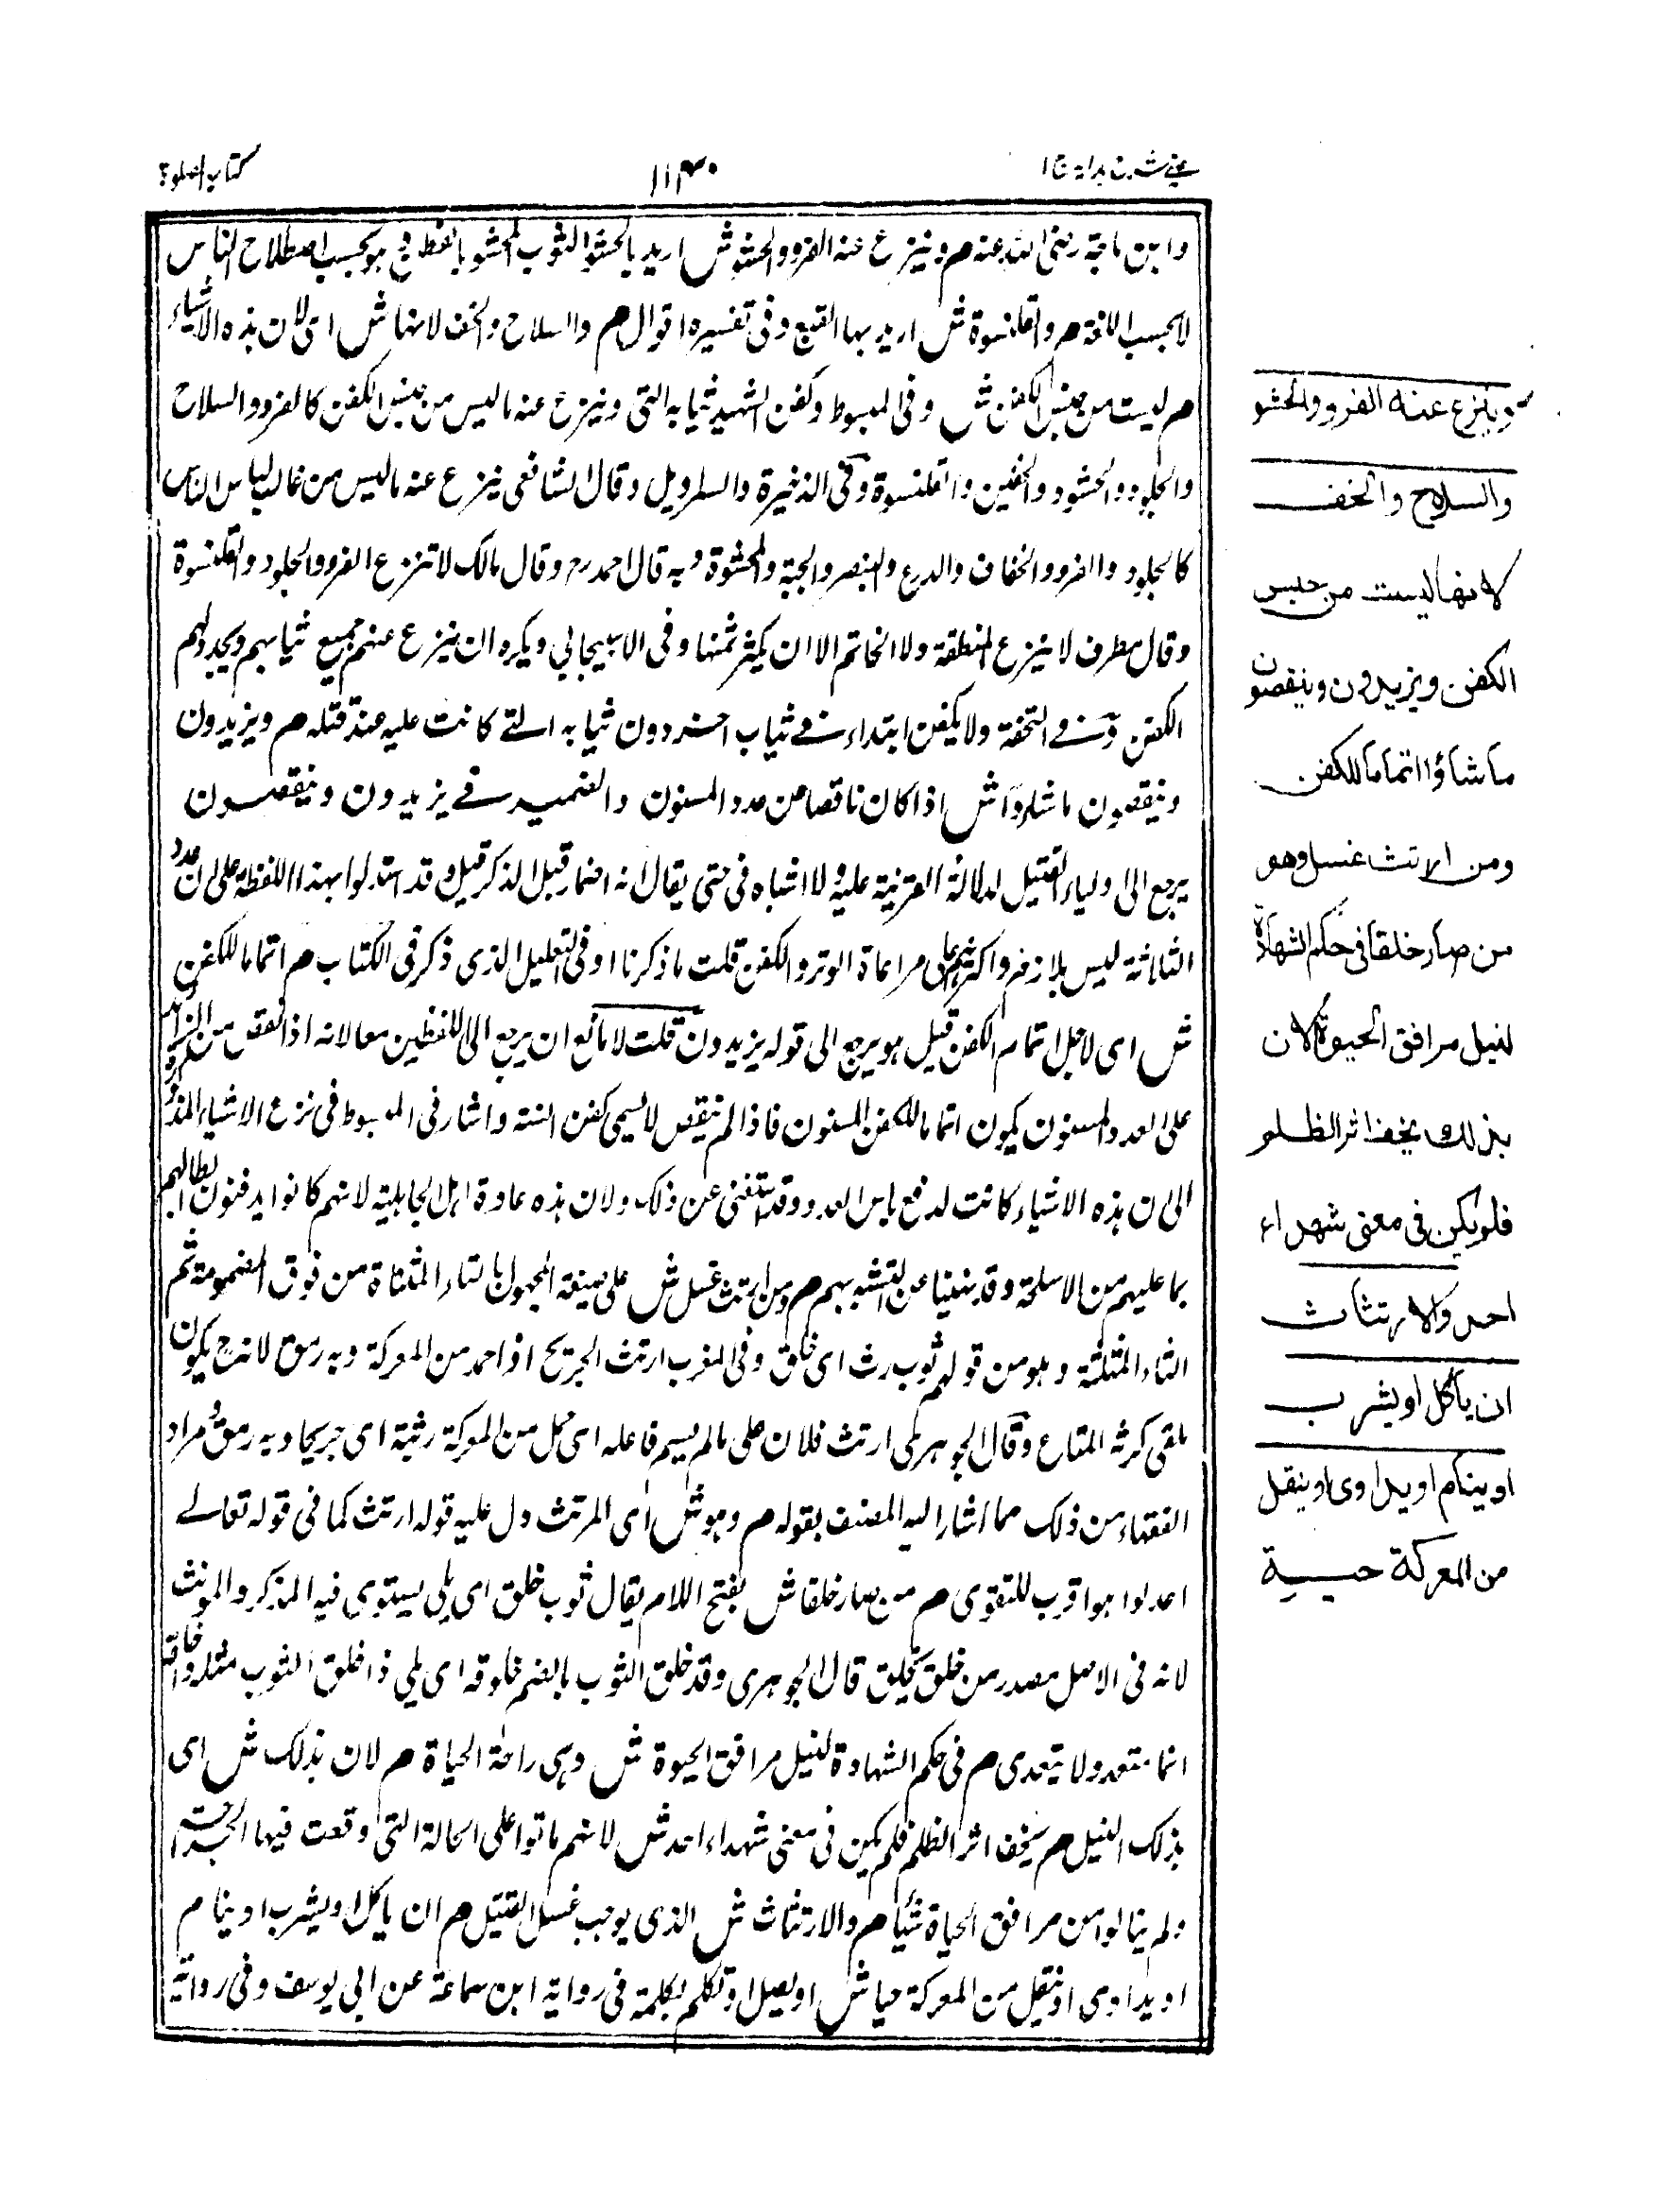 عینی شرح ہدایہ ج ١
١١٣٠
کتاب الصلوۃ
وابن ماجة رضی الله عنه م وینزع عنه الفرو والحشو ش ارید بالحشو الثوب المحشو بالقطن فی هو بحسب اصطلاح الناس
لا بحسب اللغة م والقلنسوة ش ارید بها القبع وفی تفسیره اقوال م والسلاح والخف لانها ش ای لان هذه الاشیاء
م لیست من جنس الکفن ش وفی المبسوط وکفن الشهید ثیابه التی وینزع عنه ما لیس من جنس الکفن کالفرو والسلاح
والجلود والحشو والخفین والقلنسوة وفی الذخیرة والسراویل وقال الشافعی ینزع عنه ما لیس من غالب لباس الناس
کالجلود والفرو والخفاف والدرع والجبة والمحشوة وبه قال احمد رح وقال مالک لا تنزع الفرو والجلود والقلنسوة
وقال مطرف لا ینزع المنطقة ولا الخاتم الا ان یکثر ثمنها وفی الاسبیجابی ویکره ان ینزع عنهم جمیع ثیابهم ویجدد لهم
الکفن وفی التحفة ولا یکفن ابتداء فی ثیاب اخر دون ثیابه التی کانت علیه عند قتله م ویزیدون
وینقصون ما شاءوا ش اذا کان ناقصا من عدد المسنون والضمیر فی یزیدون وینقصون
یرجع الی اولیاء القتیل لدلالة القرینة علیه ولا اشباه فی حتی یقال انه اضمار قبل الذکر قیل وقد استدلوا بهذا اللفظة علی ان عدد
الثلاثة لیس بلازم واکثرهم علی مراعاة الوتر والکفن قلت ما ذکرنا اوفی التعلیل الذی ذکر فی الکتاب م اتماما للکفن
ش ای لاجل اتمام الکفن قیل هو یرجع الی قوله یزیدون قلت لا مانع ان یرجع الی اللفظین معا لانه اذا نقص من الزائد
علی العدد المسنون یکون اتماما للکفن المسنون فاذا لم ینقص لا یسمی کفن السنة واشار فی المبسوط فی نزع الاشیاء المذکورة
الی ان هذه الاشیاء کانت لدفع باس العدو وقد استغنی عن ذلک ولان هذه عادة اهل الجاهلیة لانهم کانوا یدفنون ابطالهم
بما علیهم من الاسلحة وقد نهینا عن التشبه بهم م ومن ارتث غسل ش علی صیغة المجهول بالتاء المثناة من فوق المضمومة ثم
الثاء المثلثة وهو من قولهم ثوب رث ای خلق وفی المغرب ارتث الجریح اذا حمل من المعرکة وبه رمق لانه ح یکون
ملقی کرثة المتاع وقال الجوهری ارتث فلان علی ما لم یسم فاعله ای حمل من المعرکة رثیثا ای جریحا وبه رمق ومراد
الفقهاء من ذلک مما اشار الیه المصنف بقوله م وهو ش ای المرتث دل علیه قوله ارتث کما فی قوله تعالی
اعدلوا هو اقرب للتقوی م من صار خلقا ش بفتح اللام یقال ثوب خلق ای بلی یستوی فیه المذکر والمونث
لانه فی الاصل مصدر من خلق یخلق قال الجوهری وقد خلق الثوب بالضم خلوقه ای بلی ذا خلق الثوب مثله واخلقته
انما یتعدی ولا یتعدی م فی حکم الشهادة لنیل مرافق الحیوة ش وهی راحة الحیاة م لان بذلک ش ای
بذلک النیل م یخف اثر الظلم فلم یکن فی معنی شهداء احد ش لانهم ماتوا علی الحالة التی وقعت فیها الجراحة
ولم ینالوا من مرافق الحیاة شیئا م والارتثاث ش الذی یوجب غسل القتیل م ان یاکل او یشرب او ینام
او یداوی او ینقل من المعرکة حیا ش او یصل او تکلم بکلمة فی روایة ابن سماعة عن ابی یوسف وفی روایة
وینزع عنه الفرو والحشو
والسلاح والخف
لانها لیست من جنس
الکفن ویزیدون وینقصون
ما شاؤا اتماما للکفن
ومن ارتث غسل وهو
من صار خلقا فی حکم الشهادة
لنیل مرافق الحیوة لان
بذلک یخف اثر الظلم
فلم یکن فی معنی شهداء
احد والارتثاث
ان یأکل او یشرب
او ینام او یداوی او ینقل
من المعرکة حیا